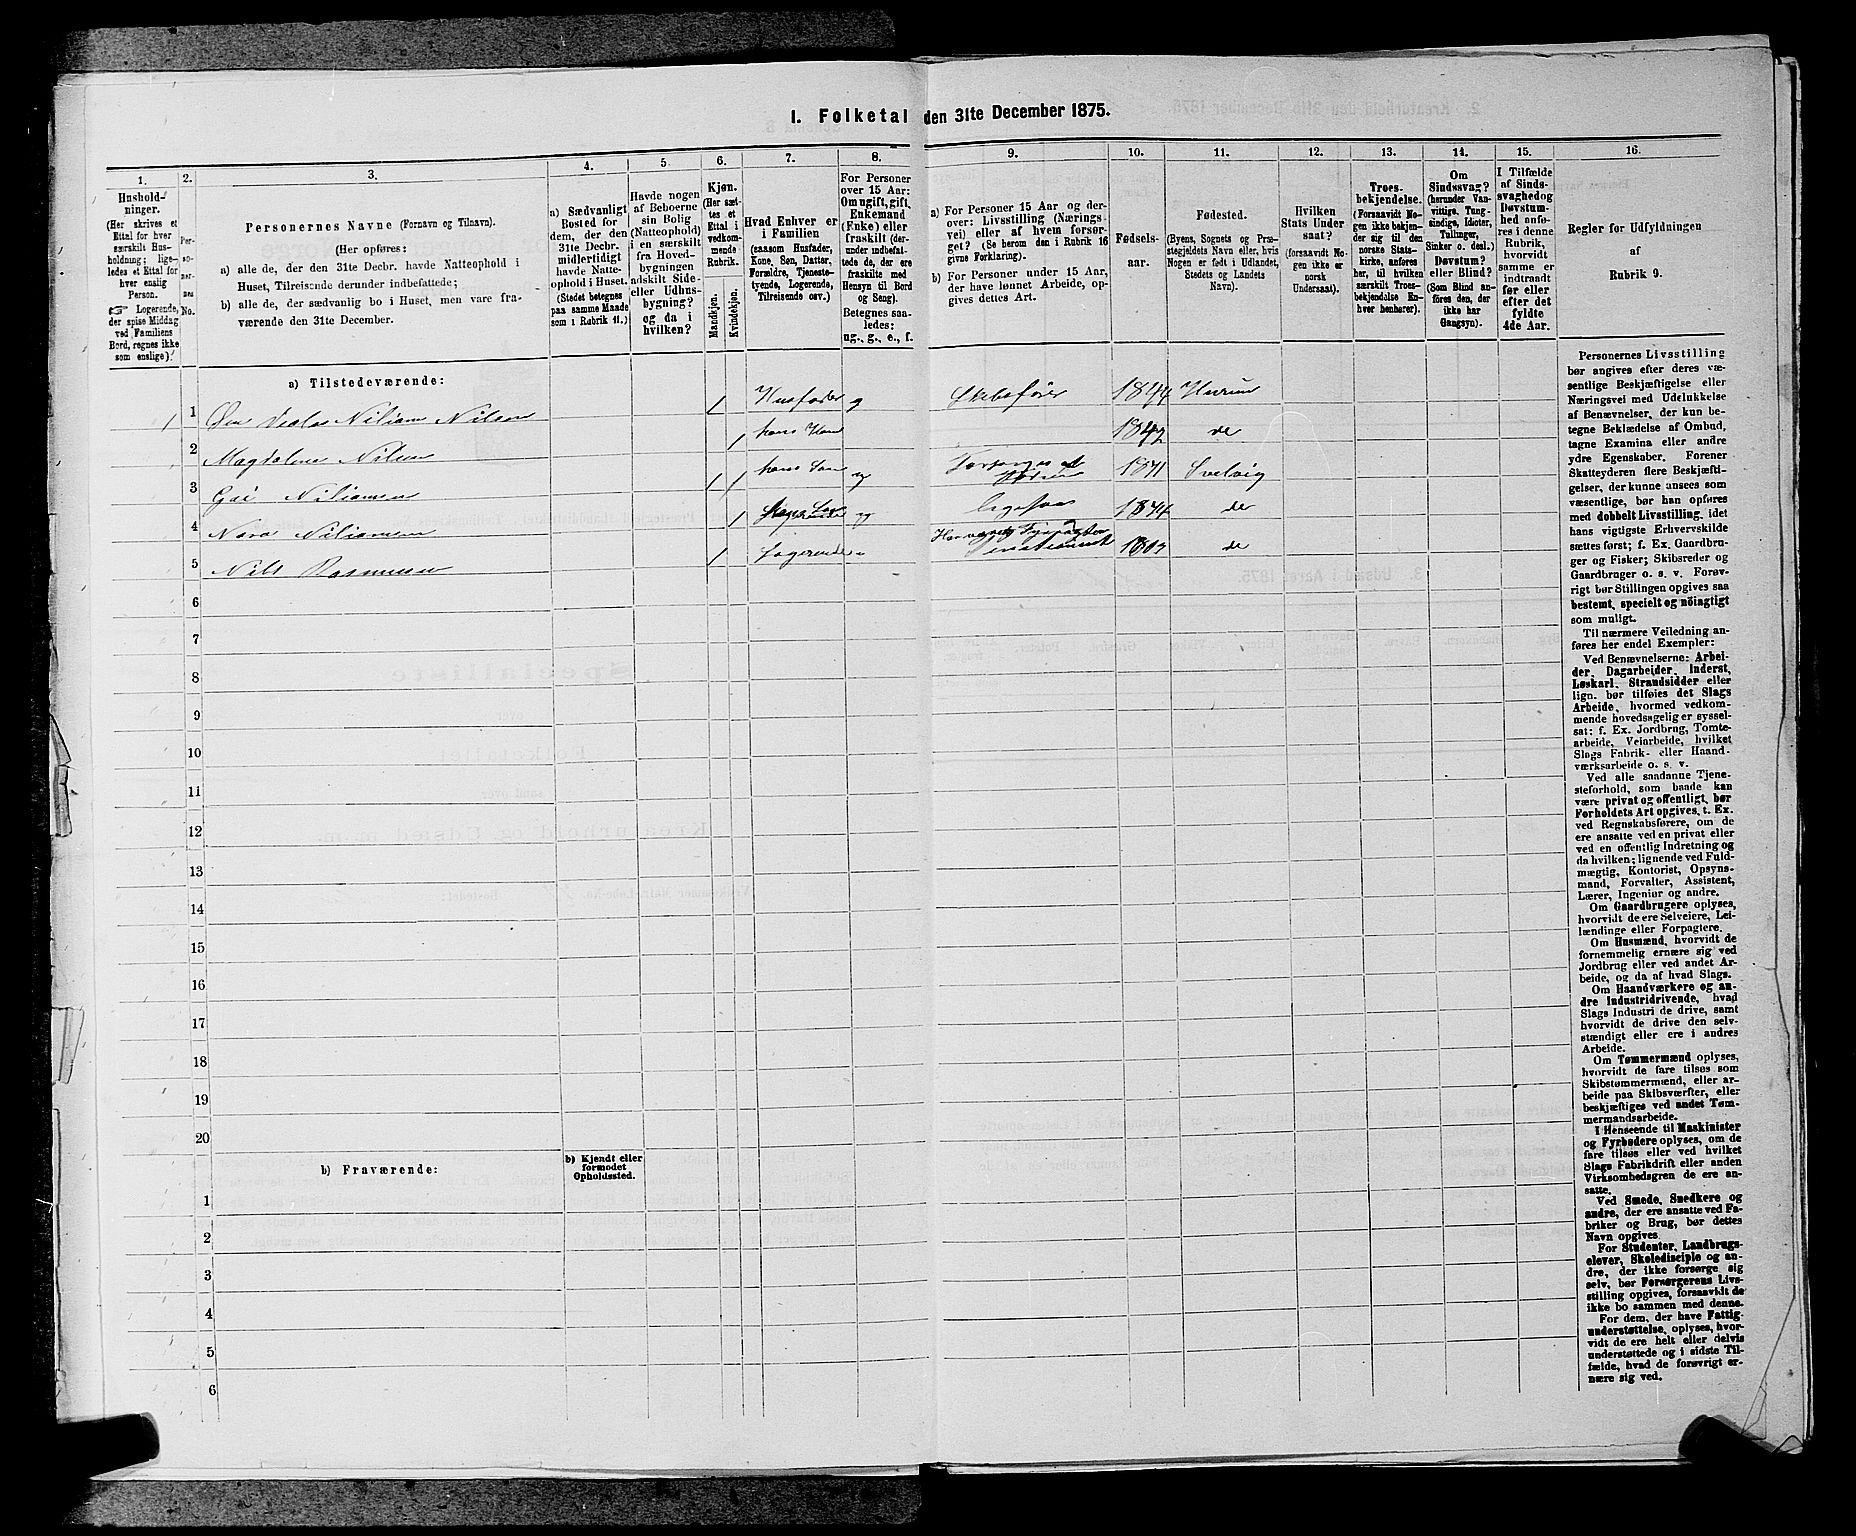 I. Folketal den 31te December 1875.
1.
2.
3.
4.
5.
6.
7.
8.
9.
10.
11.
12.
13.
14.
15.
16.
Hushold-
ninger.
(Her skrives et
Ettal for hver
særskilt Hus-
holdning; lige-
ledes et Ettal for
hver enslig
Person.
☞ Logerende,
der spise Middag
ved Familiens
Bord, regnes ikke
som enslige).
Per-
so-
nes
No.
Personernes Navne (Fornavn og Tilnavn).
(Her opføres:
a) alle de, der den 31te Decbr. havde Natteophold i
Huset, Tilreisende derunder indbefattede;
b) alle de, der sædvanlig bo i Huset, men vare fra-
værende den 31te December.
a) Sædvanligt
Bosted for
dem, der den
31te Decbr.
midlertidigt
havde Natte-
ophold i Huset.
(Stedet betegnes
paa samme Maade
som i Rubrik 11.)
Havde nogen
af Beboerne
sin Bolig
(Natteophold)
i en særskilt
fra Hoved-
bygningen
adskilt Side-
eller Udhus-
bygning?
og da i
hvilken?
Kjøn.
(Her sæt-
tes et
Ettal i
vedkom-
mende
Rubrik.
Mandkjøn.
Kvindekjøn.
Hvad Enhver er
i Familien
(saasom Husfader,
Kone, Søn, Datter,
Forældre, Tjeneste-
tyende, Logerende,
Tilreisende osv.)
For Personer
over 15 Aar:
Om ugift, gift,
Enkemand
(Enke) eller
fraskilt (der-
under indbefat-
tede de, der ere
fraskilte med
Hensyn til Bord
og Seng).
Betegnes saa-
ledes:
ug., g., e., f.
a) For Personer 15 Aar og der-
over: Livsstilling (Nærings-
vei) eller af hvem forsør-
get? (Se herom den i Rubrik 16
givne Forklaring).
b) For Personer under 15 Aar,
der have lønnet Arbeide, op-
gives dettes Art.
Fødsels-
aar.
Fødested.
(Byens, Sognets og Præ-
stegjeldets Navn eller, hvis
Nogen er født i Udlandet,
Stedets og Landets
Navn).
Hvilken
Stats Under
saat?
(forsaavidt No-
gen ikke er
norsk
Undersaat).
Troes-
bekjendelse.
(Forsaavidt No-
gen ikke bekjen-
der sig til den
norske Stats-
kirke, anføres
her, til hvilken
særskilt Troes-
bekjendelse En-
hver henhører).
Om
Sindssvag?
(herunder Van-
vittige, Tung-
sindige, Idioter,
Tullinger,
Sinker o. desl.)
Døvstum?
eller Blind?
(Som Blind an-
føres den, der
ikke har
Gangsyn).
I Tilfælde
af Sinds-
svaghed og
Døvstum-
hed anfø-
res i denne
Rubrik,
hvorvidt
samme er
indtraadt
før eller
efter det
fyldte
4de Aar.
Regler for Udfyldningen
af
Rubrik 9.
a) Tilstedeværende:
1 1 Nilsen 1 Husfader g Skibsfører 1844 Hurum
2 Magdalene Nilsen 1 hans Kone 1842 do
3 Nilsansen hans Søn 1871 Svelvig
4 Nora 1 Logerende 1844 do
5 Nils Rasmussen 1 Logerende 1803 do
6
7
8
9
10
11
12
13
14
15
16
17
18
19
20
b) Fraværende:
b) Kjendt eller
formodet
Opholdssted.
1
2
3
4
5
6
Personernes Livsstilling
bør angives efter deres væ-
sentlige Beskjæftigelse eller
Næringsvei med Udelukkelse
af Benævnelser, der kun be-
tegne Beklædelse af Ombud,
tagne Examina eller andre
ydre Egenskaber. Forener
Skatteyderen flere Beskjæfti-
gelser, der kunne ansees som
væsentlige, bør han opføres
med dobbelt Livsstilling, idet
hans vigtigste Erhvervskilde
sættes først; f. Ex. Gaardbru-
ger og Fisker; Skibsreder og
Gaardbruger o. s. v. Forøv-
rigt bør Stillingen opgives saa
bestemt, specielt og nöiagtigt
som muligt.
Til nærmere Veiledning an-
føres her endel Exempler:
Ved Benævnelserne: Arbei-
der, Dagarbeider, Inderst,
Løskarl, Strandsidder eller
lign. bør tilføies det Slags
Arbeide, hvormed vedkom-
mende hovedsagelig er syssel-
sat: f. Ex. Jordbrug, Tomte-
arbeide, Veiarbeide, hvilket
Slags Fabrik- eller Haand-
værksarbeide o. s. v.
Ved alle saadanne Tjene-
steforhold, som baade kan
være privat og offentligt, bør
Forholdets Art opgives, t. Ex.
ved Regnskabsførere, om de
ere ansatte ved en privat eller
ved en offentlig Indretning og
da hvilken; lignende ved Fuld-
mægtig, Kontorist, Opsyns-
mand, Forvalter, Assistent,
Lærer, Ingeniør og andre.
Om Gaardbrugere oplyses,
hvorvidt de ere Selveiere, Lei-
lændinge eller Forpagtere.
Om Husmænd, hvorvidt de
fornemmelig ernære sig ved
Jordbrug eller ved andet Ar-
beide, og da af hvad Slags.
Om Haandværkere og an-
dre Industridrivende, hvad
Slags Industri de drive, samt
hvorvidt de drive den selv-
stændigt eller ere i andres
Arbeide.
Om Tømmermænd oplyses,
hvorvidt de fare tilsøs som
Skibstømmermænd, eller ar-
beide paa Skibsværfter, eller
beskjæftiges ved andet Tøm-
mermandsarbeide.
I Henseende til Maskinister
og Fyrbødere oplyses, om de
fare tilsøs eller ved hvilket
Slags Fabrikdrift eller anden
Virksomhedsgren de ere an-
satte.
Ved Smede, Snedkere og
andre, der ere ansatte ved Fa-
briker og Brug, bør dettes
Navn opgives.
For Studenter, Landbrugs-
elever, Skoledisciple og an-
dre, der ikke forsørge sig
selv, bør Forsørgerens Livs-
stilling opgives, forsaavidt de
ikke bo sammen med denne.
For dem, der have Fattig-
understøttelse, oplyses, hvor-
vidt de ere helt eller delvis
understøttede og i sidste Til-
fælde, hvad de forøvrigt er-
nære sig ved.